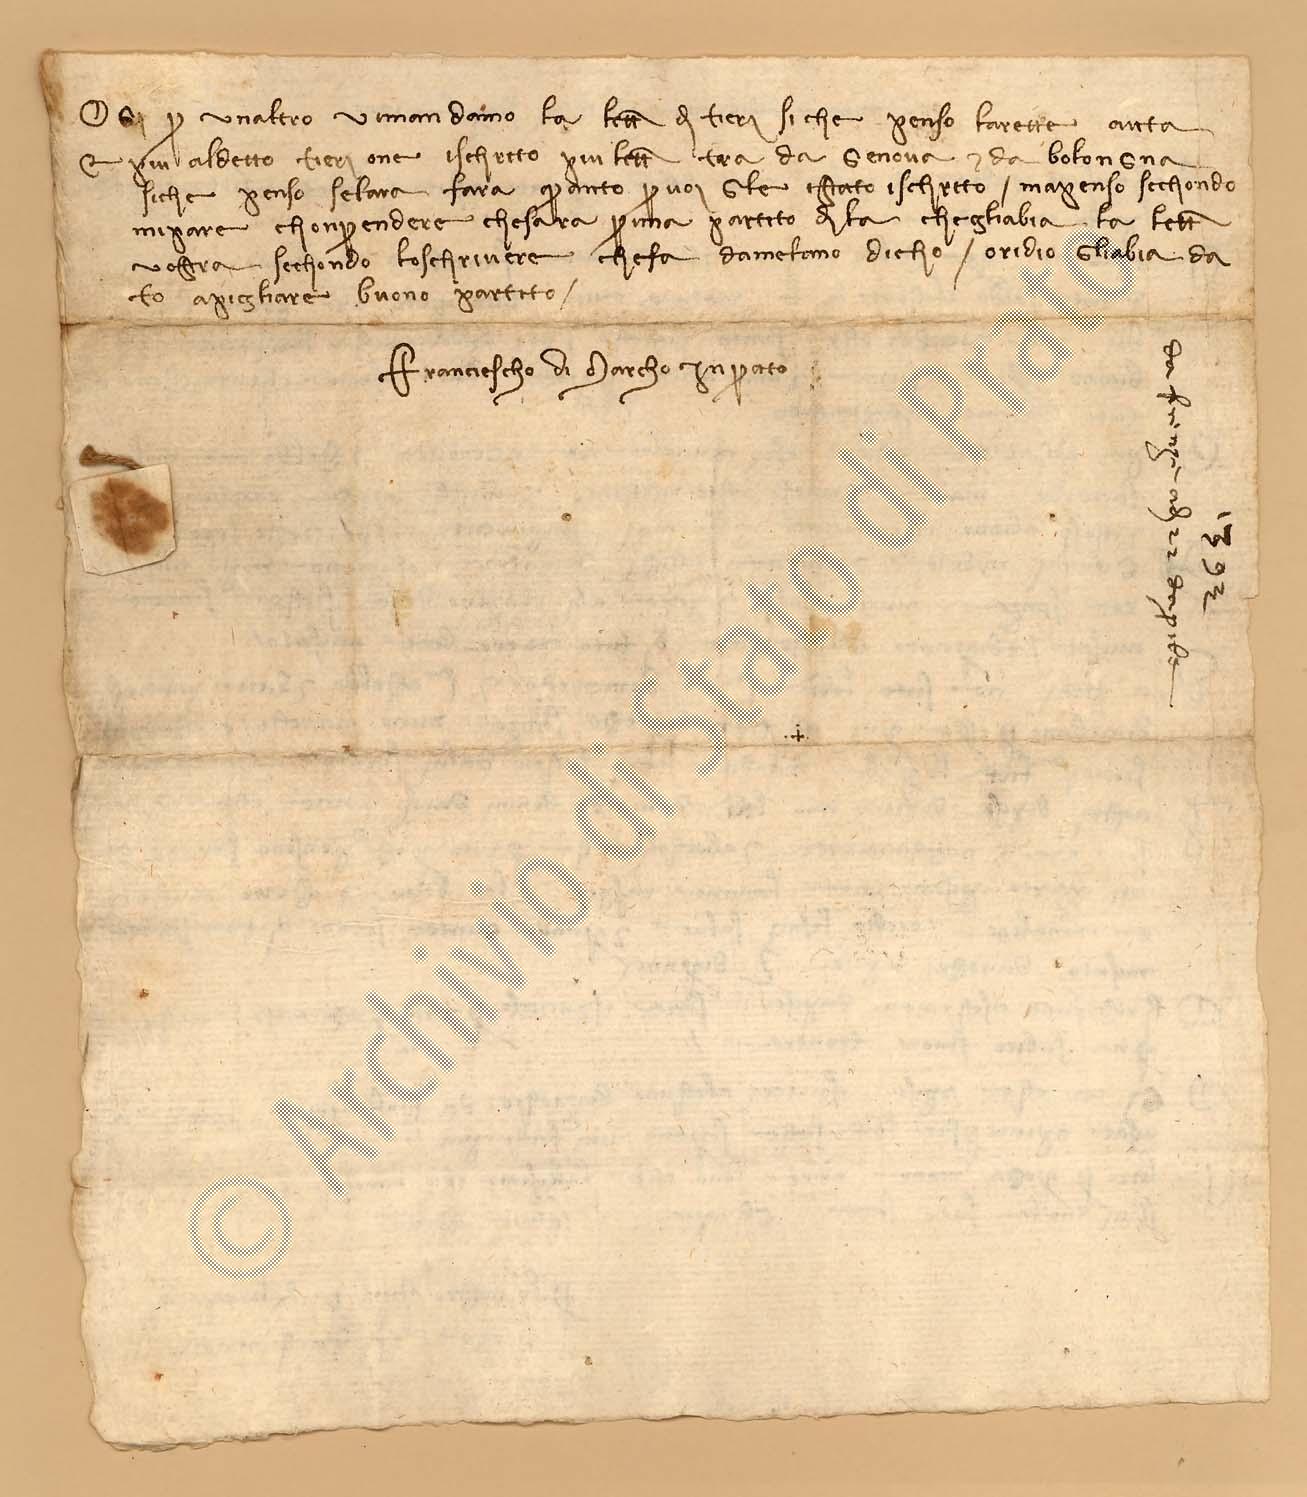 Ogi p unaltro vimandamo la lett di tieri siche penso larette auta
E piu aldetto tieri one ischritto piu lett tra da Genova e da bolongna
siche penso selara fara quanto p voi gle istato ischritto / mapenso sechondo
mipare chonprendere chesara prima partito di la chegliabia la lett
vostra sechondo loschrivere chefa dametano dicho / oridio gliabia da
to apigliare buono partito /
Franciescho di Marcho in prato
1392
da firenze
© Archivio di Stato di Prato